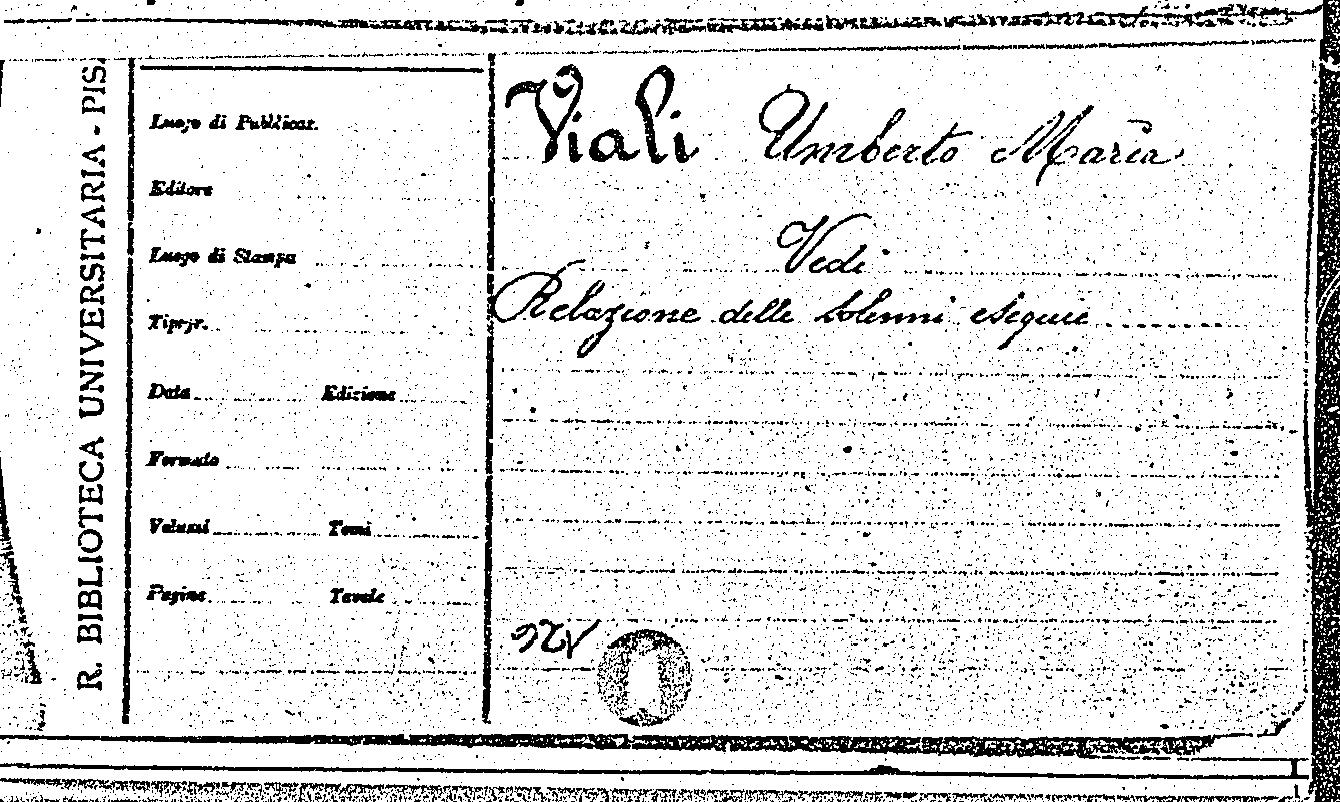 R. BIBLIOTECA UNIVERSITARIA - PISA
Luogo di Pubblicaz.
Editore
Luogo di Stampa
Tipogr.
Data Edizione
Formato
Volumi Tomi
Pagine Tavole
Viali Umberto Maria
Vedi
Relazione delle solenni esequie